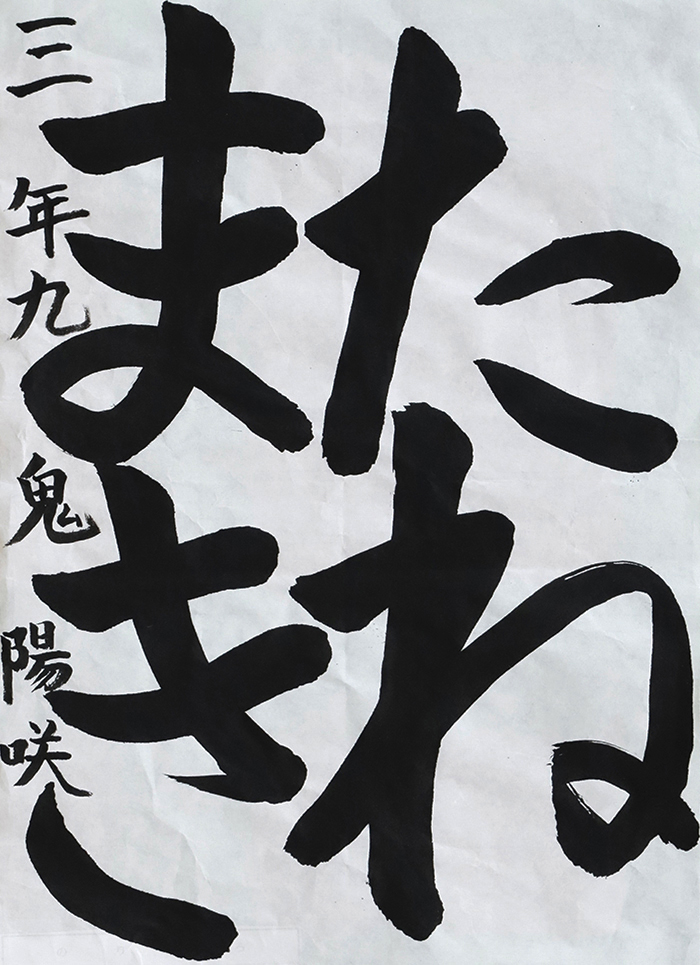 たね
まき
三年九鬼陽咲